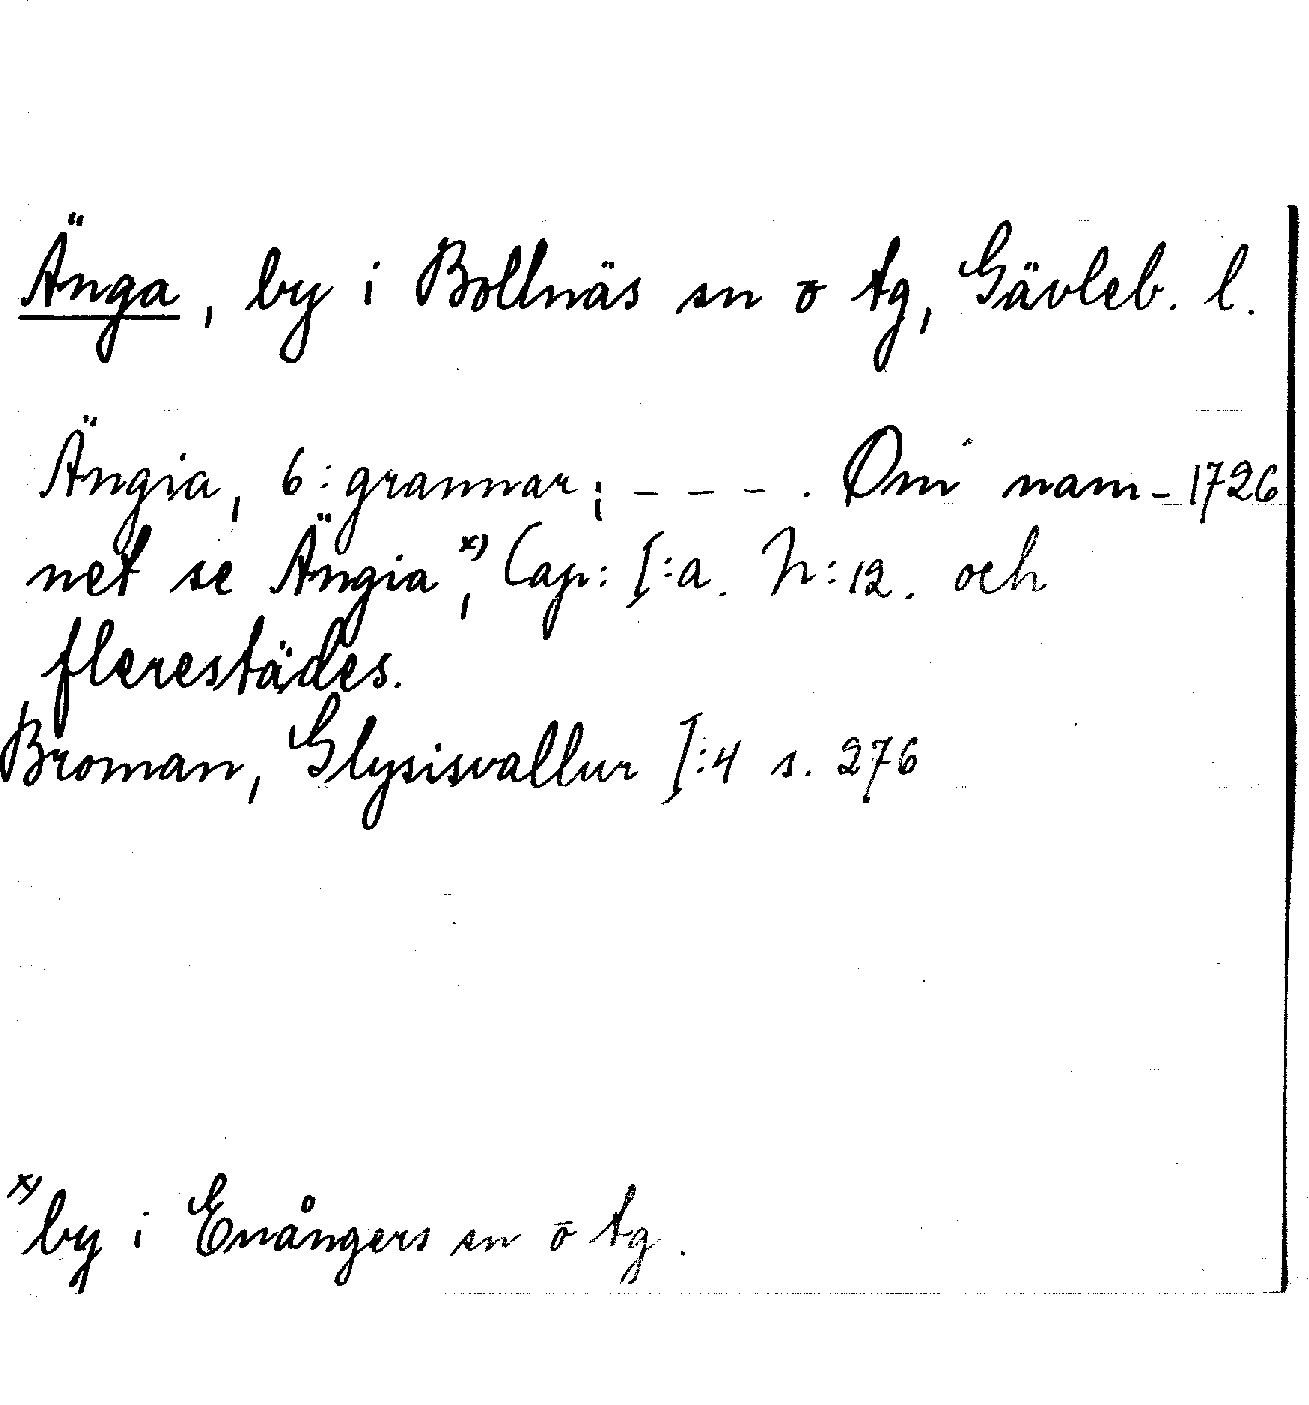 Änga, by i Bollnäs sn o tg, Gävleb. l.
Ängia, 6: grannar; - - - . Om nam- 1726
net se Ängia x), Cap: I:a. N:12. och
flerestädes.
Broman, Glysisvallur I:4 s. 276
x) by i Enångers sn o tg.